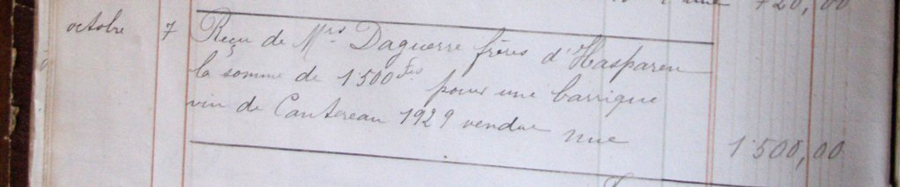 720,00
octobre 7 Reçu de Mrs Daguerre frères d'Hasparen
la somme de 1500 frs pour une barrique
vin de Cantereau 1929 vendue nue 1500,00